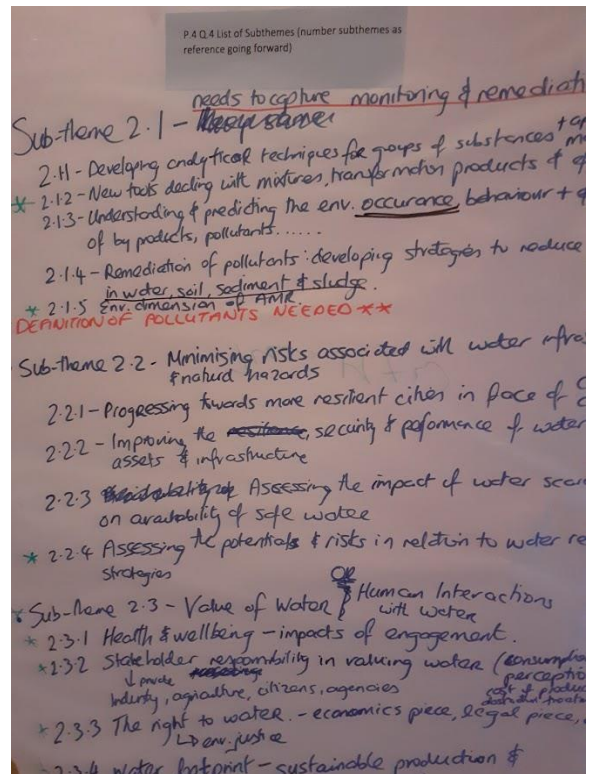 P.4 Q.4 List of Subthemes (number subthemes as
reference going forward)
needs to capture monitoring & remediati
Sub-theme 2.1 -
2.1.1 - Developing analytical techniques for groups of substances +
* 2.1.2 - New tools dealing with mixtures, transformation products &
2.1.3 - Understanding & predicting the env. occurance, behaviour +
of by products, pollutants......
2.1.4 - Remediation of pollutants: developing strategies to reduce
in water, soil, sediment & sludge.
* 2.1.5 Env. dimension of AMR.
DEFINITION OF POLLUTANTS NEEDED **
Sub-theme 2.2 - Minimising risks associated with water infras
& natural hazards
2.2.1 - Progressing towards more resilient cities in face of C
2.2.2 - Improving the resilience, security & peformance of water
assets & infrastructure
2.2.3 Assessing the impact of water scar
on availability of safe water
* 2.2.4 Assessing the potentials & risks in relation to water re
strategies
OR
Sub-theme 2.3 - Value of Water } Human Interactions
with water
* 2.3.1 Health & wellbeing - impacts of engagement.
* 2.3.2 Stakeholder responsibility in valuing water (consumption
perceptio
↓ private
Industry, agriculture, citizens, agencies
cost of produc
* 2.3.3 The right to water. - economics piece, legal piece,
↳ env. justice
2.3.4 Water footprint - sustainable production &